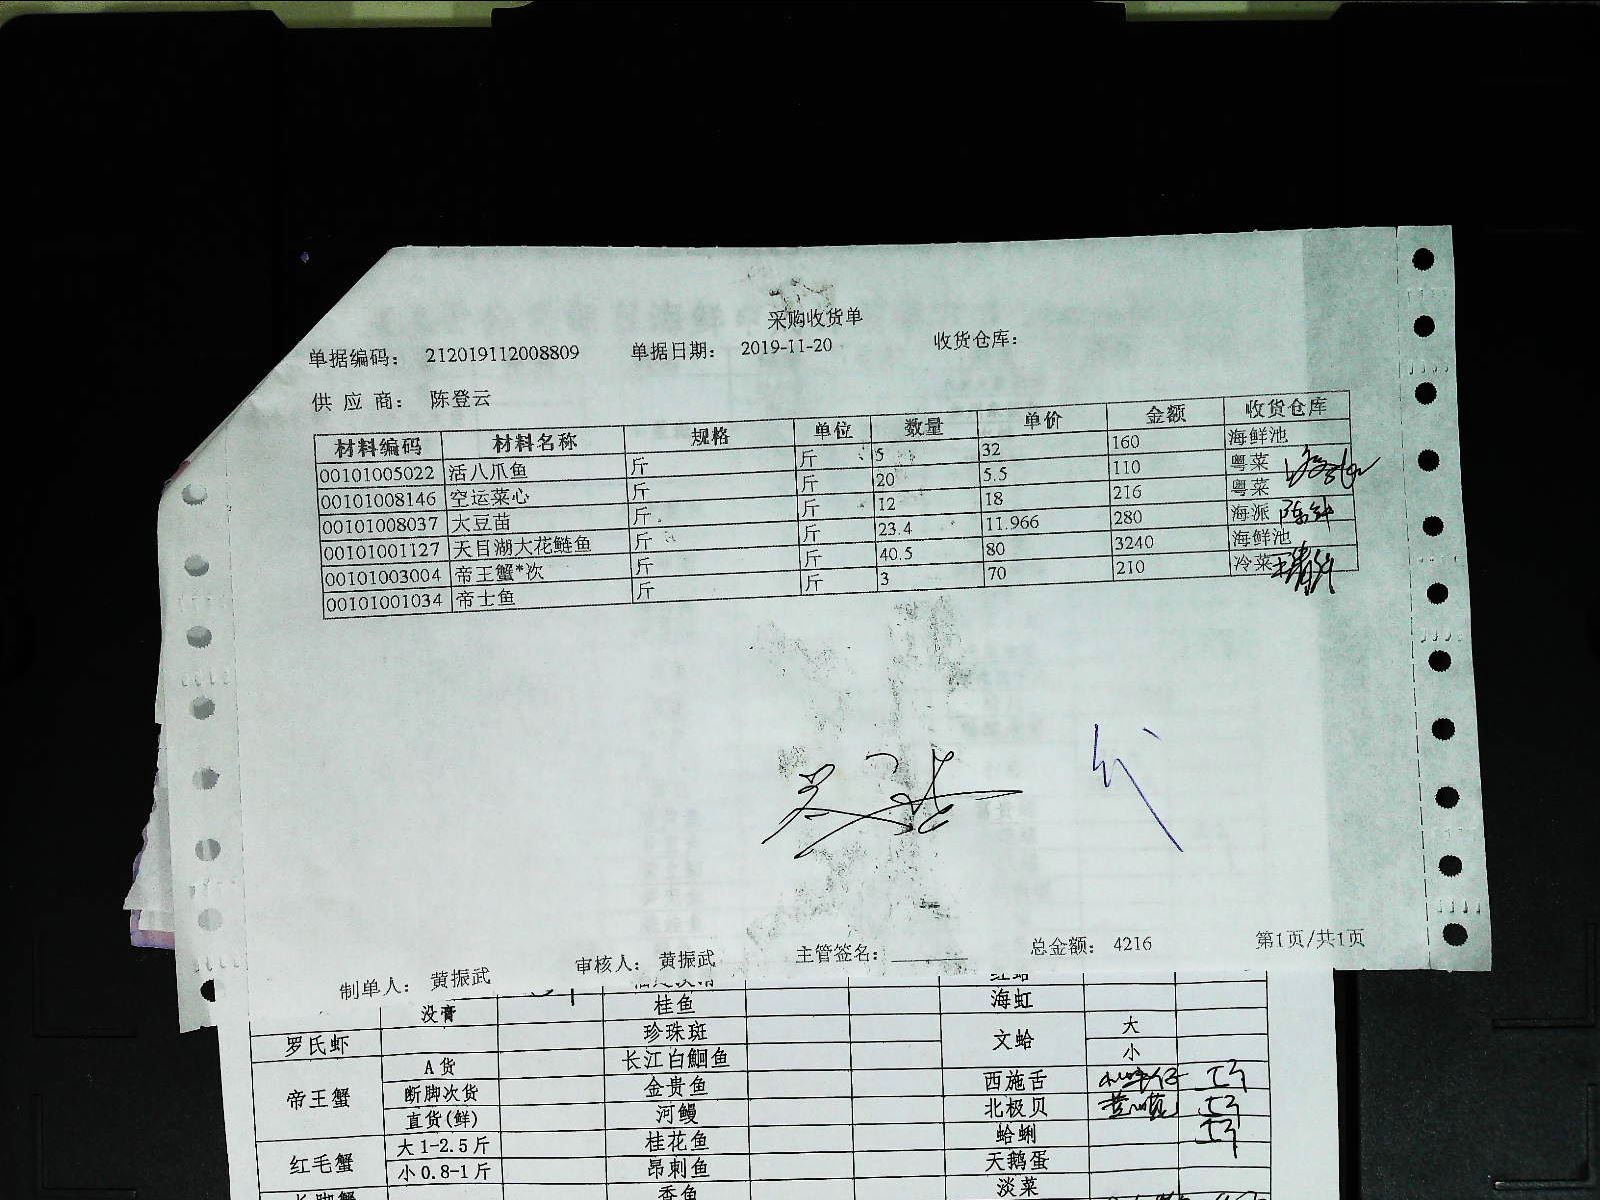 采购收货单
单据编码： 212019112008809 单据日期： 2019-11-20 收货仓库：
供 应 商： 陈登云
材料编码 材料名称 规格 单位 数量 单价 金额 收货仓库
00101005022 活八爪鱼 斤 斤 5 32 160 海鲜池
00101008146 空运菜心 斤 斤 20 5.5 110 粤菜
00101008037 大豆苗 斤 斤 12 18 216 粤菜
00101001127 天目湖大花鲢鱼 斤 斤 23.4 11.966 280 海派
00101003004 帝王蟹*次 斤 斤 40.5 80 3240 海鲜池
00101001034 帝士鱼 斤 斤 3 70 210 冷菜
制单人： 黄振武 审核人： 黄振武 主管签名： 总金额： 4216 第1页/共1页
没膏 桂鱼 海虹
罗氏虾 珍珠斑 文蛤 大
帝王蟹 A货 长江白鮰鱼 小
断脚次货 金贵鱼 西施舌
直货(鲜) 河鳗 北极贝
红毛蟹 大1-2.5斤 桂花鱼 蛤蜊
小0.8-1斤 昂刺鱼 天鹅蛋
香鱼 淡菜